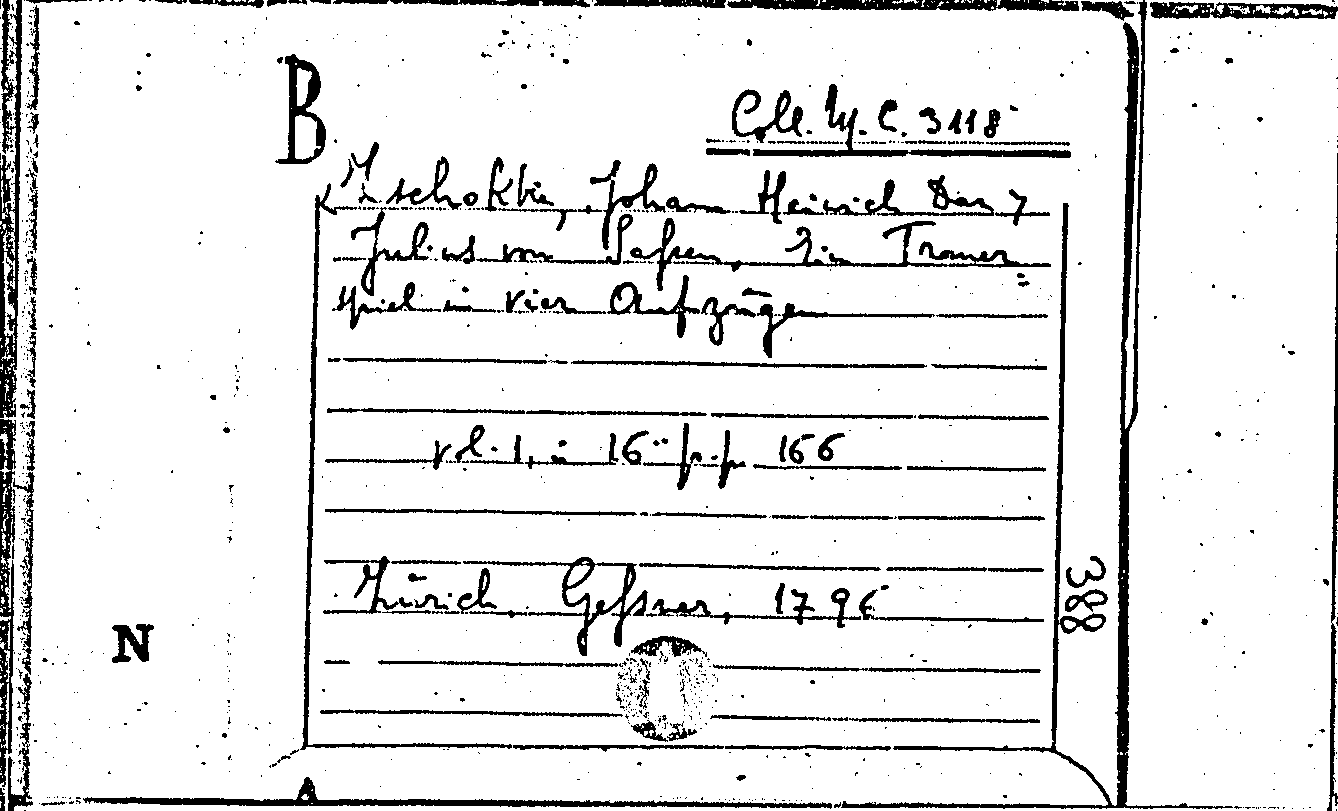 B
Coll. M. C. 3118
Zschokke, Johann Heinrich Dan 7
Julius von Sassen, Ein Trauer=
spiel in vier Aufzügen
vol. 1, in 16° p.p. 166
Zürich, Geſsner, 1796
388
N
A